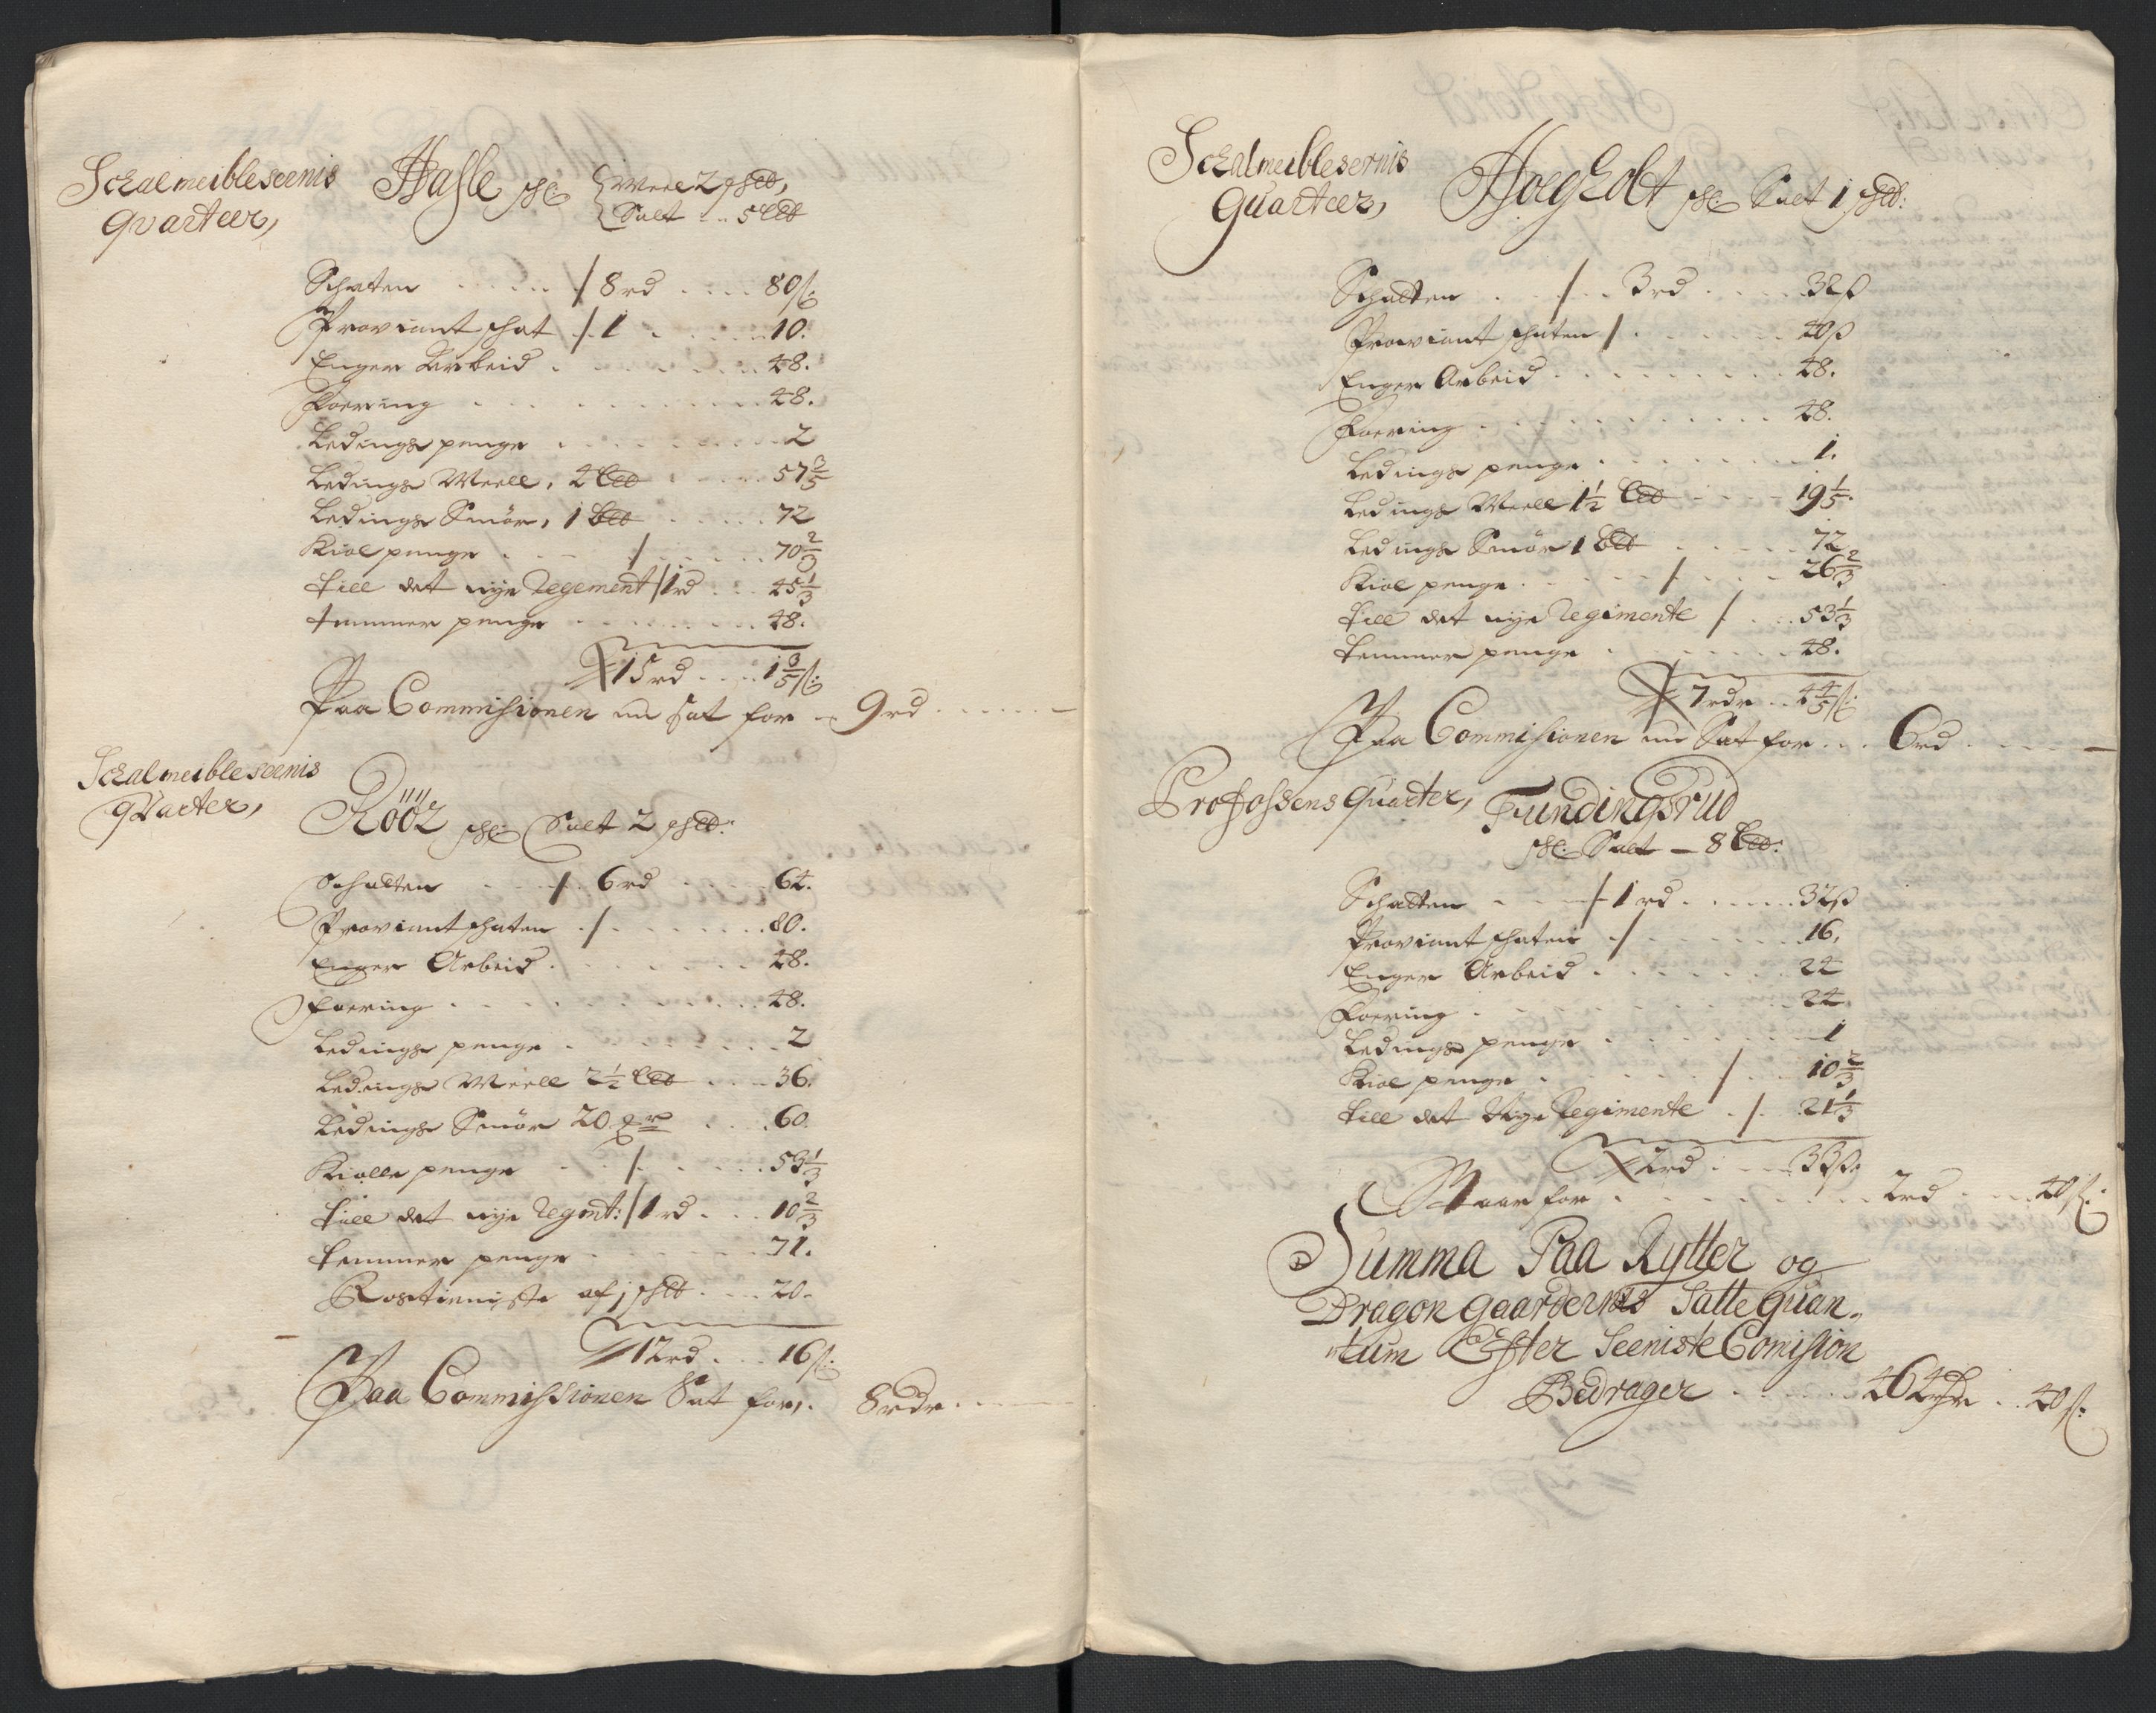 Schalmeibleseenis
Qvarteer,
Hasle schl: Meel 2 schlb,
Salt .. 5 Lb
Schaten ..... / 8rd .... 80ß:
Proviant schat /. 1 ..... 10.
Enger Arbeid ......... 48.
Foering ......... 48.
Ledings penge ......... 2
Ledings Meell, 4 Lb ..... 57 3/5
Ledings Smör, 1 Lb ..... 72
Kiol penge ... / ..... 70 2/3
till det nye Regement / 1rd ... 45 1/3
tømmer penge ........ 48.
15rd .... 1 3/5 ß:
Paa Commisionen nu sat for .. 9rd ......
Schalmeibleseenis
qvarter,
Rööz schl: Salt 2 schlb:
Schatten .../. 6rd .... 64.
Proviant schaten ./. ....... 80.
Enger Arbeid ........ 48.
Foering ......... 48.
Ledings penge ........ 2
Ledings Meell 2 1/2 Lb .... 36.
Ledings Smör 20 mr .... 60.
Kiolle penge .. / ..... 53 1/3
till det nye Regmt: / 1rd ... 10 2/3
tømmer penge ....... 71.
Rostieniste af 1 schlb .... 20.
12rd ... 16ß:
Paa Commissionen Sat for, . 8rdr.....
Schalmeiblesernis
Quarteer,
Hoegholt schl: Salt 1 schlb:
Schatten .. / .. 3rd .... 32ß
Proviant schaten / ...... 40ß
Enger Arbeid ......... 48.
Foering ......... 48.
Ledings penge ........ 1.
Ledings Meell 1 1/2 Lb .... 19 1/5.
Ledings Smör 1 Lb ..... 72.
Kiol penge ..... / .... 26 2/3
till det nye Regimente / ... 53 1/3
tømmer penge ....... 48.
7rdr .. 4 4/5 ß:
Paa Commisionen nu Sat for ... 6rd ..... —
Profossens Quarter, Fundingsrud
schl: Salt — 8 Lb:
Schatten ... / 1 rd ...... 32ß
Proviant schaten ./. ...... 16.
Enger Arbeid ....... 24
Foering ......... 24
Ledings penge ....... 1
Kiol penge ...... / .. 10 2/3
till det Nye Regimente ./. 21 1/3
2rd ... 33ß.
War for ....... 2rd ... 40ß:
Summa Paa Rytter og
Dragon gaardernis Satte Quan-
tum Efter Seeniste Comision
Bedrager ..... 464 rdr .. 40ß: